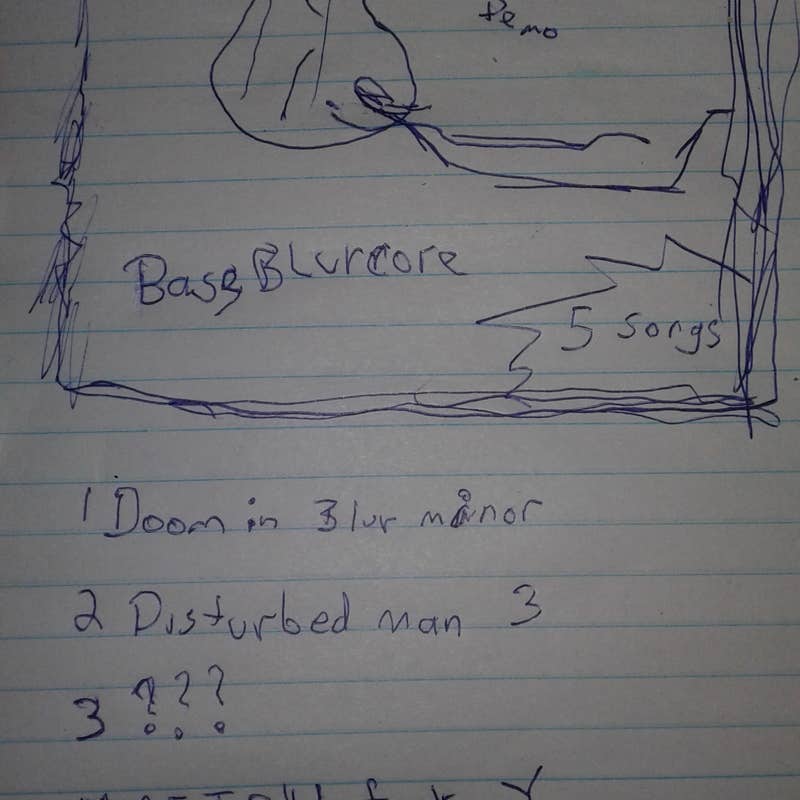 Demo
Bass Blurcore
5 songs
1 Doom in Blur manor
2 Disturbed man 3
3 ???